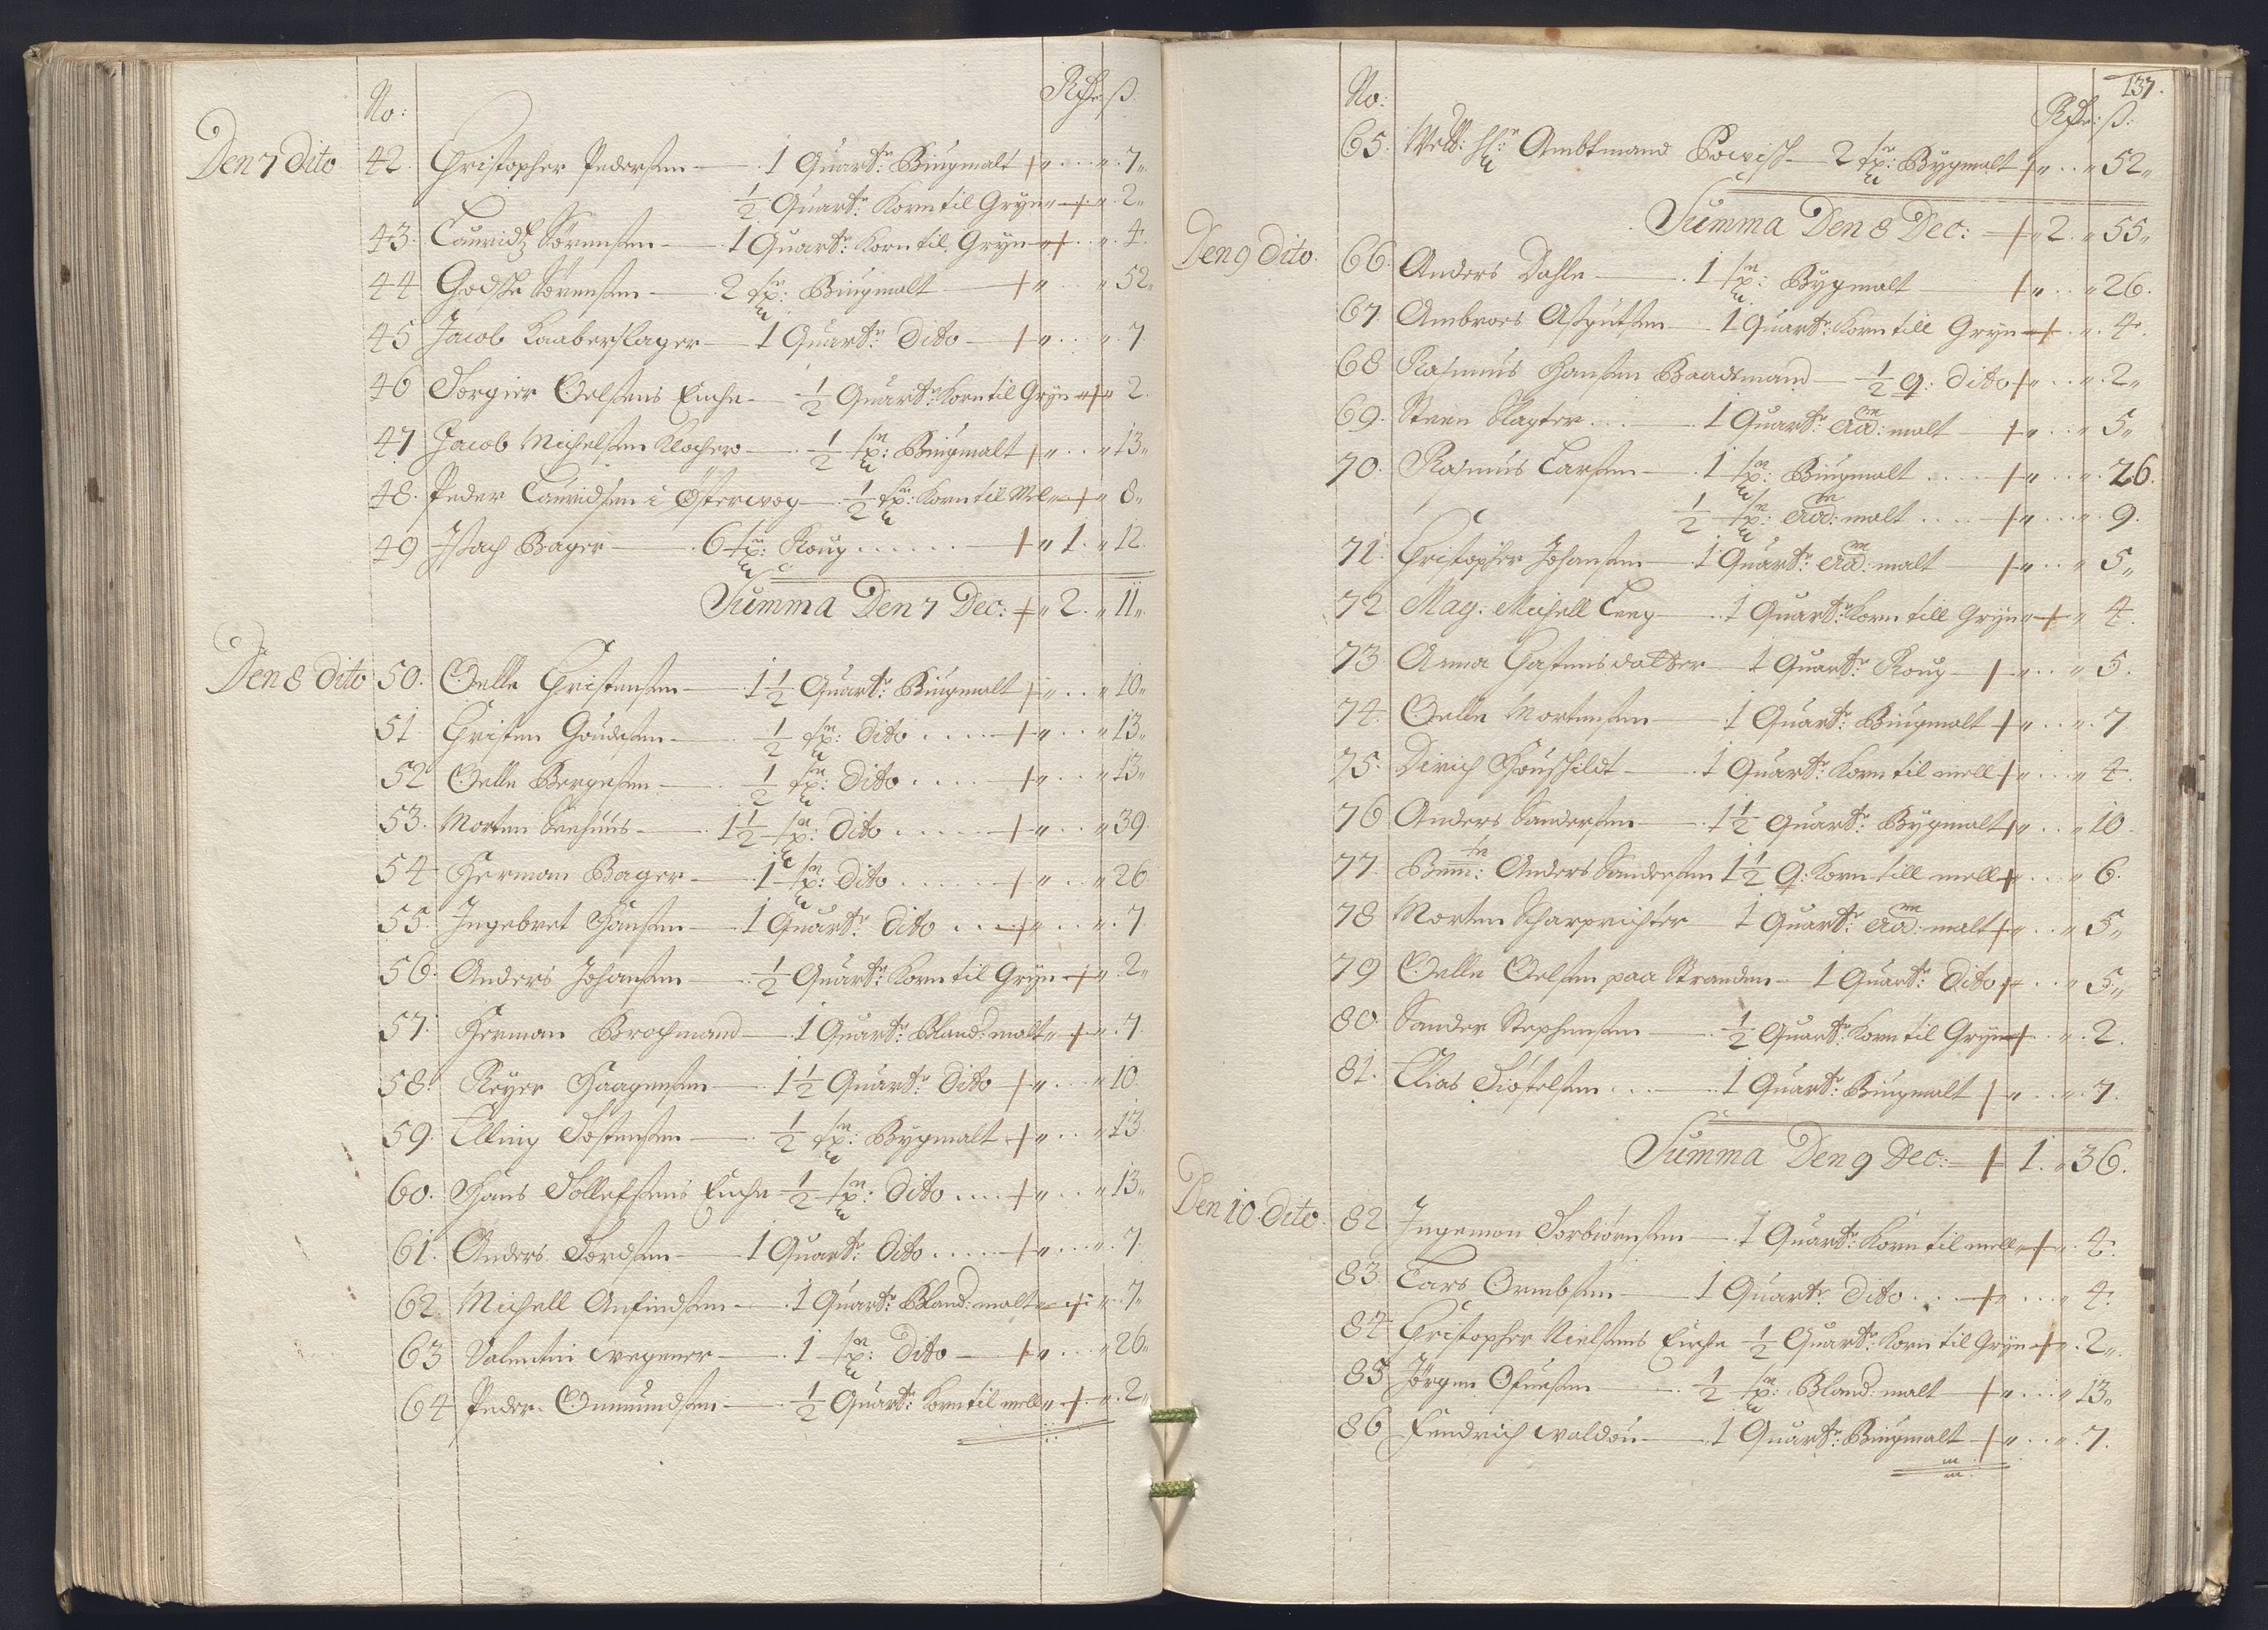 No: Rdr: ß.
Den 7 Dito 42. Christopher Pedersen — 1 Quartr: Biugmalt „ „ 7„
½ Quartr: Korn til Gryn „ „ 2„
43. Lauridtz Sörensen — 1 Quartr: Korn til Gryn „ „ 4.
44 Godske Sörensen — 2 spn: Biugmalt — „ „ 52„
45 Jacob Kaaberslager — 1 Quartr: Dito — „ „ 7
46 Torgier Oelsens Enche — ½ Quartr: Korn til Gryn „ „ 2.
47 Jacob Michelsen Klocher — ½ spn: Biugmalt „ „ 13„
48. Peder Lauridsen i Österwog — ½ spn: Korn til Mel „ „ 8„
49 Isach Bager — 6 spn: Roug „ 1. „ 12.
Summa Den 7 Dec: „ 2. „ 11„
Den 8 Dito 50. Oelle Christensen — 1½ Quartr: Biugmalt „ „ 10„
51 Christen Goudesen — ½ spn: Dito „ „ 13„
52 Oelle Bergesen — ½ spn: Dito „ „ 13„
53. Morten Seehuus — 1½ spn: Dito „ „ 39.
54 Herman Bager — 1 spn: Dito „ „ 26.
55. Ingebret Hansen — 1 Quartr: Dito „ „ 7
56. Anders Johansen — ½ Quartr: Korn til Gryn „ 2„
57. Herman Brochmand — 1 Quartr: Bland: malt „ „ 7.
58. Reyer Haagensen — 1½ Quartr: Dito „ „ 10
59. Elling Tostensen — ½ spn: Bygmalt „ „ 13
60. Hans Tollefsens Enche — ½ spn: Dito „ „ 13„
61. Anders Tordsen — 1 Quartr: Dito „ „ 7
62. Michell Anfindsen — 1 Quartr: Bland: malt „ „ 7„
63 Valentin Wegener — 1 spn: Dito — „ „ 26„
64 Peder Ommundsen — ½ Quartr: Korn til mell „ „ 2„
137.
No: Rdr: ß:
65. Welb: Hr: Ambtmand Powisch — 2 spn: Bygmalt „ „ 52„
Summa Den 8 Dec: „ 2. „ 55„
Den 9 Dito. 66. Anders Dahle — 1 spn: Bygmalt „ „ 26.
67. Ambroes — 1 Quartr: Korn till Gryn „ 4.
68 Rasmus Hansen Baadsmand — ½ q: Dito „ „ 2„
69. Steen Slagter — 1 Quartr: Ad: malt „ „ 5„
70. Rasmus Larsen — 1 spn: Biugmalt „ „ 26.
½ spn: Ad: malt „ „ 9.
71. Christopher Johansen — 1 Quartr: Ad: malt „ „ 5„
72 Mag: Michell Leng — 1 Quartr: Korn till Gryn „ „ 4.
73 Anna Hastensdatter — 1 Quartr: Roug — „ „ 5.
74. Oelle Mortensen — 1 Quartr: Biugmalt „ „ 7
75. Dirich Houschildt — 1 Quartr: Korn til mell „ „ 4.
76 Anders Sandersen — 1½ Quartr: Bygmalt „ „ 10.
77. Bem: Anders Sandersen 1½ Q: Korn till mell „ „ 6.
78 Morten Scharprichter 1 Quartr: Ad: malt „ „ 5„
79 Oelle Oelsen paa Stranden — 1 Quartr: Dito „ „ 5„
80. Sander Stephensen — ½ Quartr: Korn til Gryn „ 2.
81. Elias Siofelsen — 1 Quartr: Biugmalt „ „ 7.
Summa Den 9 Dec: 1. „ 36.
Den 10. Dito. 82. Ingemon Torbiörnsen — 1 Quartr: Korn til mell „ 4.
83. Lars Ormbsen — 1 Quartr: Dito „ „ 4.
84 Christopher Nielsens Enche ½ Quartr: Korn til Gryn „ 2„
85 Jörgen — ½ spn: Bland: malt „ „ 13„
86 Hendrich Waldou — 1 Quartr: Biugmalt „ „ 7.